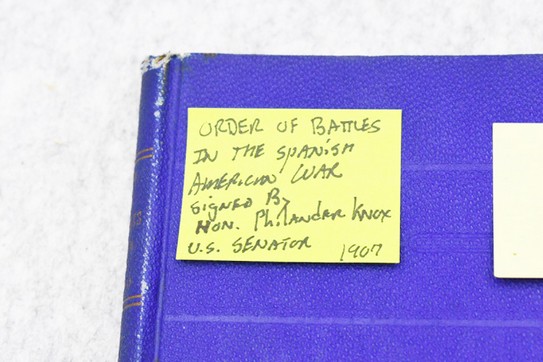 ORDER OF BATTLES
IN THE SPANISH
AMERICAN WAR
SIGNED BY
HON. PHILANDER KNOX
U.S. SENATOR 1907